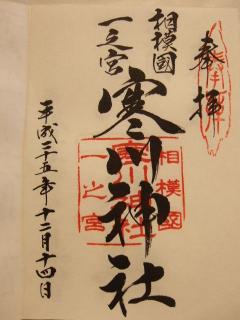 奉拝
相模國
一之宮
寒川神社
相模國
寒川神社
一之宮
平成二十五年十二月十四日